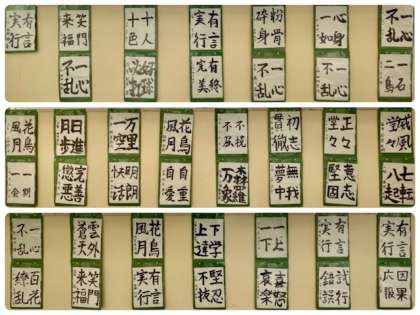 有言実行
笑門来福
十人十色
有言実行
粉骨砕身
心身一如
一心不乱
一心不乱
有終完美
一心不乱
一心不乱
一石二鳥
花鳥風月
日進月歩
万里一空
花鳥風月
不撓不屈
初志貫徹
正々堂々
威風堂々
一期一会
勧善懲悪
明朗快活
自愛自重
森羅万象
無我夢中
意志堅固
七転八起
一心不乱
雲外蒼天
花鳥風月
下学上達
一上一下
有言実行
有言実行
百花繚乱
笑門来福
有言実行
堅忍不抜
喜怒哀楽
試行錯誤
因果応報